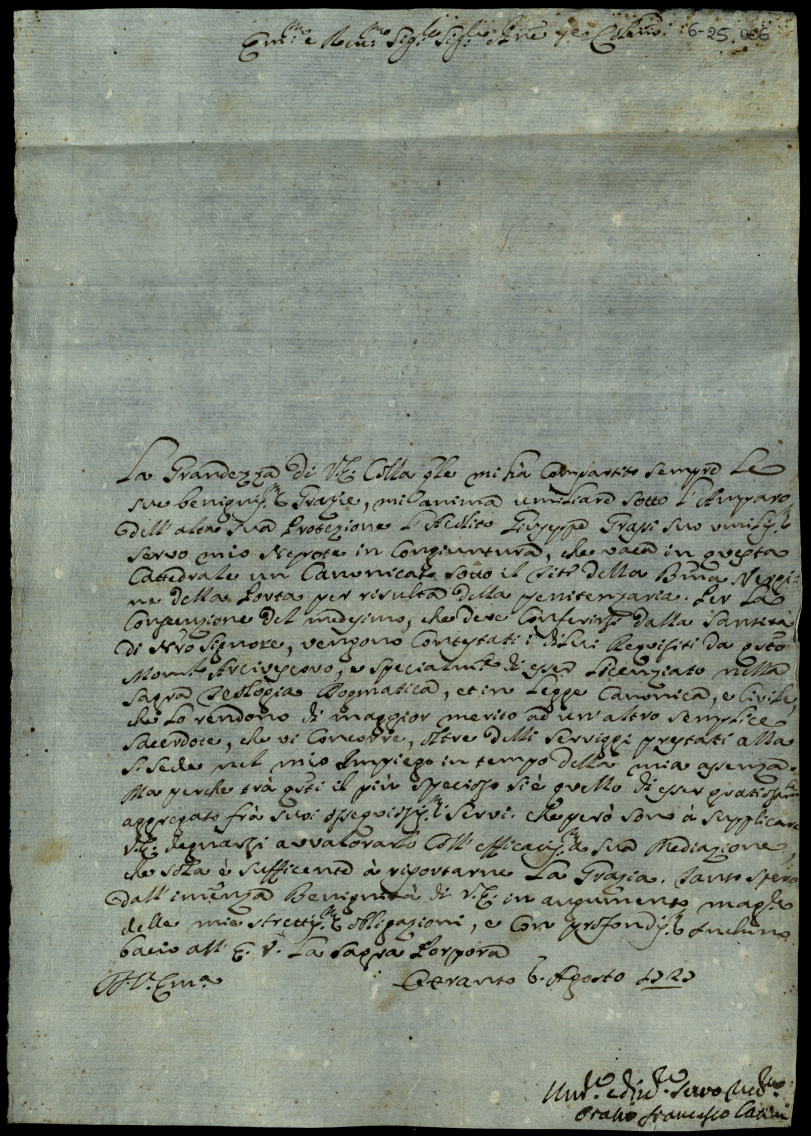 Em.mo e Rev.mo Sig.re Sig.re e Pne Col.mo 6-25.006
La Grandezza di V.E. Colla qle mi hà Compartito sempre Le
sue benignis.me Grazie, mi anima umiliare sotto l'Amparo
dell'alta sua Protezione l'Acolito Giuseppe Grassi suo umilis.mo
servo mio Nepote in Congiuntura, che vaca in questa
Cattedrale un Canonicato sotto il tit.o della Bma Vergi:
ne della Porta per risulta della penitenzaria. Per La
Conpenzione del medesimo, che deve Conferirsi dalla Santità
di Nro Signore, vengono Contestati i di lui Requisiti da qsto
Mons.r Arcivescovo, e specialm.te di esser Licenziato nella
Sagra Teologia Dogmatica, et in Legge Canonica, e Civile,
che Lo rendono di maggior merito ad un'altro semplice
Sacerdote, che vi Concorre, oltre delli serviggi prestati alla
S. Sede nel mio Impiego in tempo della mia assenza.
Ma perche trà qsti il più specioso si è quello di esser gratiosam.te
aggregato frà suoi ossequiosis.mi servi. che però sono à supplicare
V.E. degnarsi avvalorarlo Coll'efficacis.ma sua Mediazione,
che sola è sufficente à riportarne La Grazia. Tanto spero
dall'imenza Benignità di V.E. in augumento magg.re
delle mie strettis.me obligazioni, e Con profondis.mo Inchino
bacio all'E. V. La Sagra Porpora
D. V. Em.a Otranto 6. Agosto 1727
Um.mo e servo
Oratio Francesco